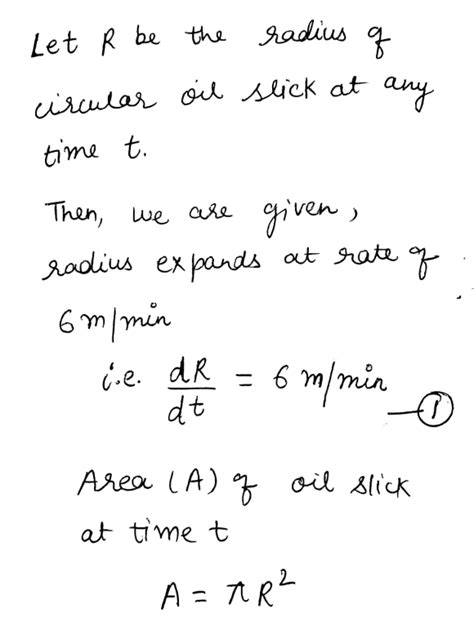 Let R be the radius of
circular oil slick at any
time t.
Then, we are given,
radius expands at rate of
6 m/min
i.e. dR/dt = 6 m/min —①
Area (A) of oil slick
at time t
A = πR²